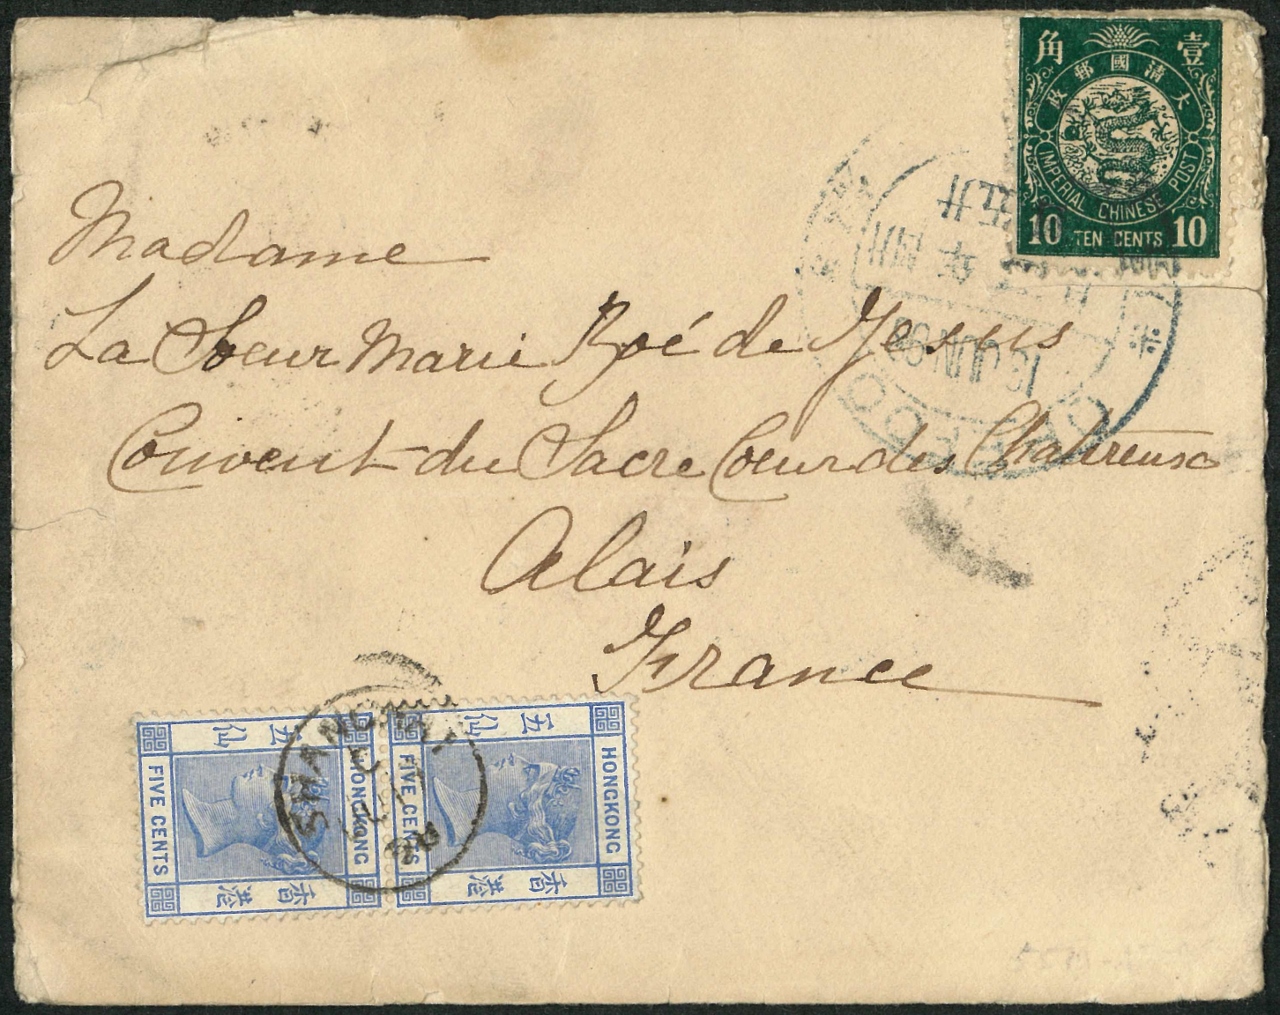 角 壹
大清國郵政
IMPERIAL CHINESE POST
10 TEN CENTS 10
CHEFOO
JUN 98
Madame
La Soeur Marie Zoé de Jesus
Couvent du Sacre Coeur des Chatreuse
Alais
France
五仙
HONGKONG
FIVE CENTS
香港
五仙
HONGKONG
FIVE CENTS
香港
SHANGHAI
98